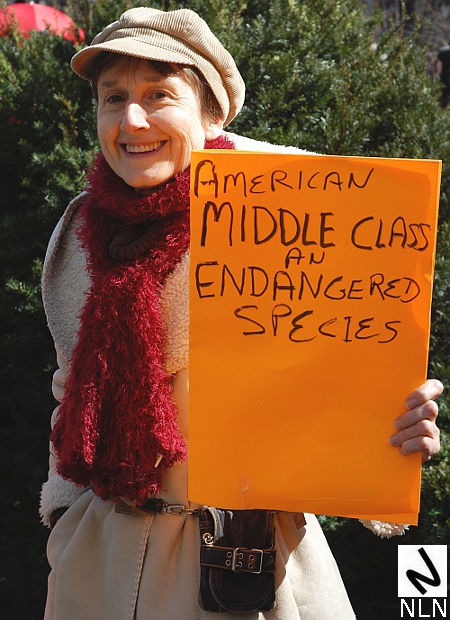 AMERICAN
MIDDLE CLASS
AN
ENDANGERED
SPECIES
N
NLN